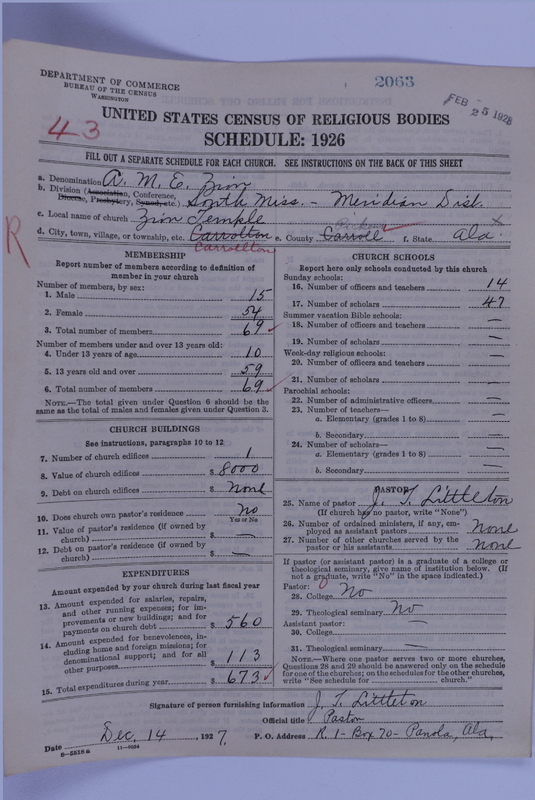 DEPARTMENT OF COMMERCE
BUREAU OF THE CENSUS
WASHINGTON
2063
FEB 25 1928
43
UNITED STATES CENSUS OF RELIGIOUS BODIES
SCHEDULE: 1926
FILL OUT A SEPARATE SCHEDULE FOR EACH CHURCH. SEE INSTRUCTIONS ON THE BACK OF THIS SHEET
R
a. Denomination A. M. E. Zion
b. Division (Association, Conference, Diocese, Presbytery, Synod, etc.) South Miss. - Meridian Dist.
c. Local name of church Zion Temple
d. City, town, village, or township, etc. Carrolton Carrollton e. County Carroll Pickens f. State Ala x
MEMBERSHIP
Report number of members according to definition of
member in your church
Number of members, by sex:
1. Male 15
2. Female 54
3. Total number of members 69
Number of members under and over 13 years old:
4. Under 13 years of age 10
5. 13 years old and over 59
6. Total number of members 69
NOTE.—The total given under Question 6 should be the
same as the total of males and females given under Question 3.
CHURCH BUILDINGS
See instructions, paragraphs 10 to 12
7. Number of church edifices 1
8. Value of church edifices $ 8000
9. Debt on church edifices $ None
10. Does church own pastor's residence No
Yes or No
11. Value of pastor's residence (if owned by
church) $ —
12. Debt on pastor's residence (if owned by
church) $ —
EXPENDITURES
Amount expended by your church during last fiscal year
13. Amount expended for salaries, repairs,
and other running expenses; for im-
provements or new buildings; and for
payments on church debt $ 560
14. Amount expended for benevolences, in-
cluding home and foreign missions; for
denominational support; and for all
other purposes $ 113
15. Total expenditures during year $ 673
CHURCH SCHOOLS
Report here only schools conducted by this church
Sunday schools:
16. Number of officers and teachers 14
17. Number of scholars 47
Summer vacation Bible schools:
18. Number of officers and teachers —
19. Number of scholars —
Week-day religious schools:
20. Number of officers and teachers —
21. Number of scholars —
Parochial schools:
22. Number of administrative officers —
23. Number of teachers—
a. Elementary (grades 1 to 8) —
b. Secondary —
24. Number of scholars—
a. Elementary (grades 1 to 8) —
b. Secondary —
PASTOR
25. Name of pastor J. T. Littleton
(If church has no pastor, write "None")
26. Number of ordained ministers, if any, em-
ployed as assistant pastors None
27. Number of other churches served by the
pastor or his assistants None
If pastor (or assistant pastor) is a graduate of a college or
theological seminary, give name of institution below. (If
not a graduate, write "No" in the space indicated.)
Pastor: 0
28. College No
29. Theological seminary No
Assistant pastor:
30. College —
31. Theological seminary —
NOTE.—Where one pastor serves two or more churches,
Questions 28 and 29 should be answered only on the schedule
for one of the churches; on the schedules for the other churches,
write "See schedule for church."
Signature of person furnishing information J. T. Littleton
Official title Pastor
Date Dec. 14, 1927. P. O. Address R. 1- Box 70- Panola, Ala.
8—5818a 11—9894